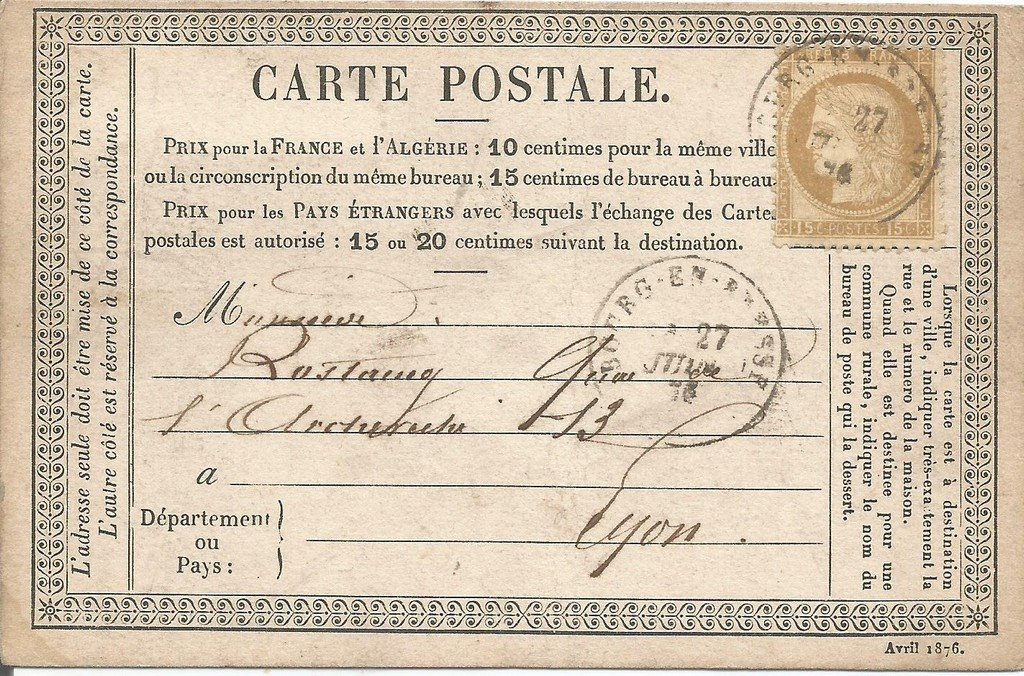 CARTE POSTALE.
PRIX pour la FRANCE et l'ALGÉRIE : 10 centimes pour la même ville
ou la circonscription du même bureau ; 15 centimes de bureau à bureau
PRIX pour les PAYS ÉTRANGERS avec lesquels l'échange des Carte
postales est autorisé : 15 ou 20 centimes suivant la destination.
L'adresse seule doit être mise de ce côté de la carte.
L'autre côté est réservé à la correspondance.
27
15 C. POSTES 15 C.
BOURG-EN-BRESSE
27
JUIN
76
Monsieur
Rostaing Quai de
l'Archevêché 13
à
Lyon.
Département
ou
Pays :
Lorsque la carte est à destination
d'une ville, indiquer très-exactement la
rue et le numero de la maison.
Quand elle est destinée pour une
commune rurale, indiquer le nom du
bureau de poste qui la dessert.
Avril 1876.